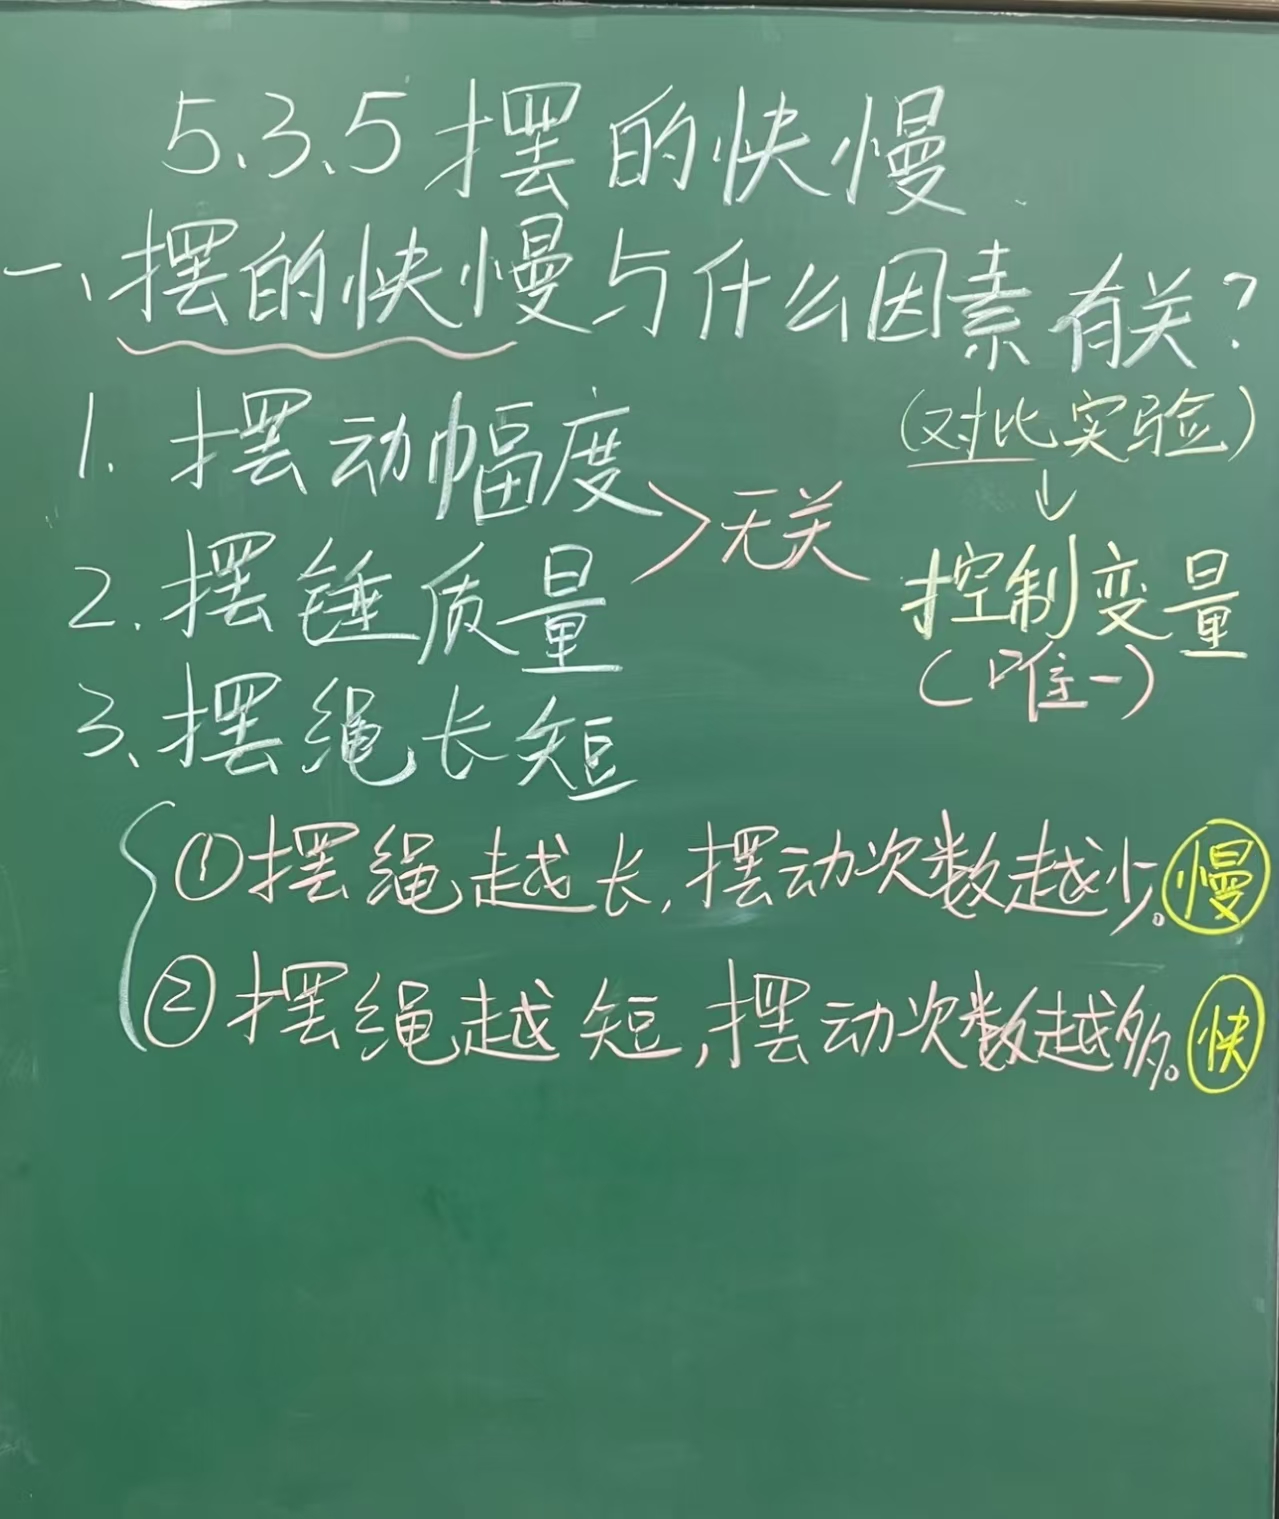 5.3.5摆的快慢
一、摆的快慢与什么因素有关?
(对比实验)
↓
控制变量
(唯一)
1. 摆动幅度
2. 摆锤质量
>无关
3、摆绳长短
①摆绳越长,摆动次数越少。慢
②摆绳越短,摆动次数越多。快